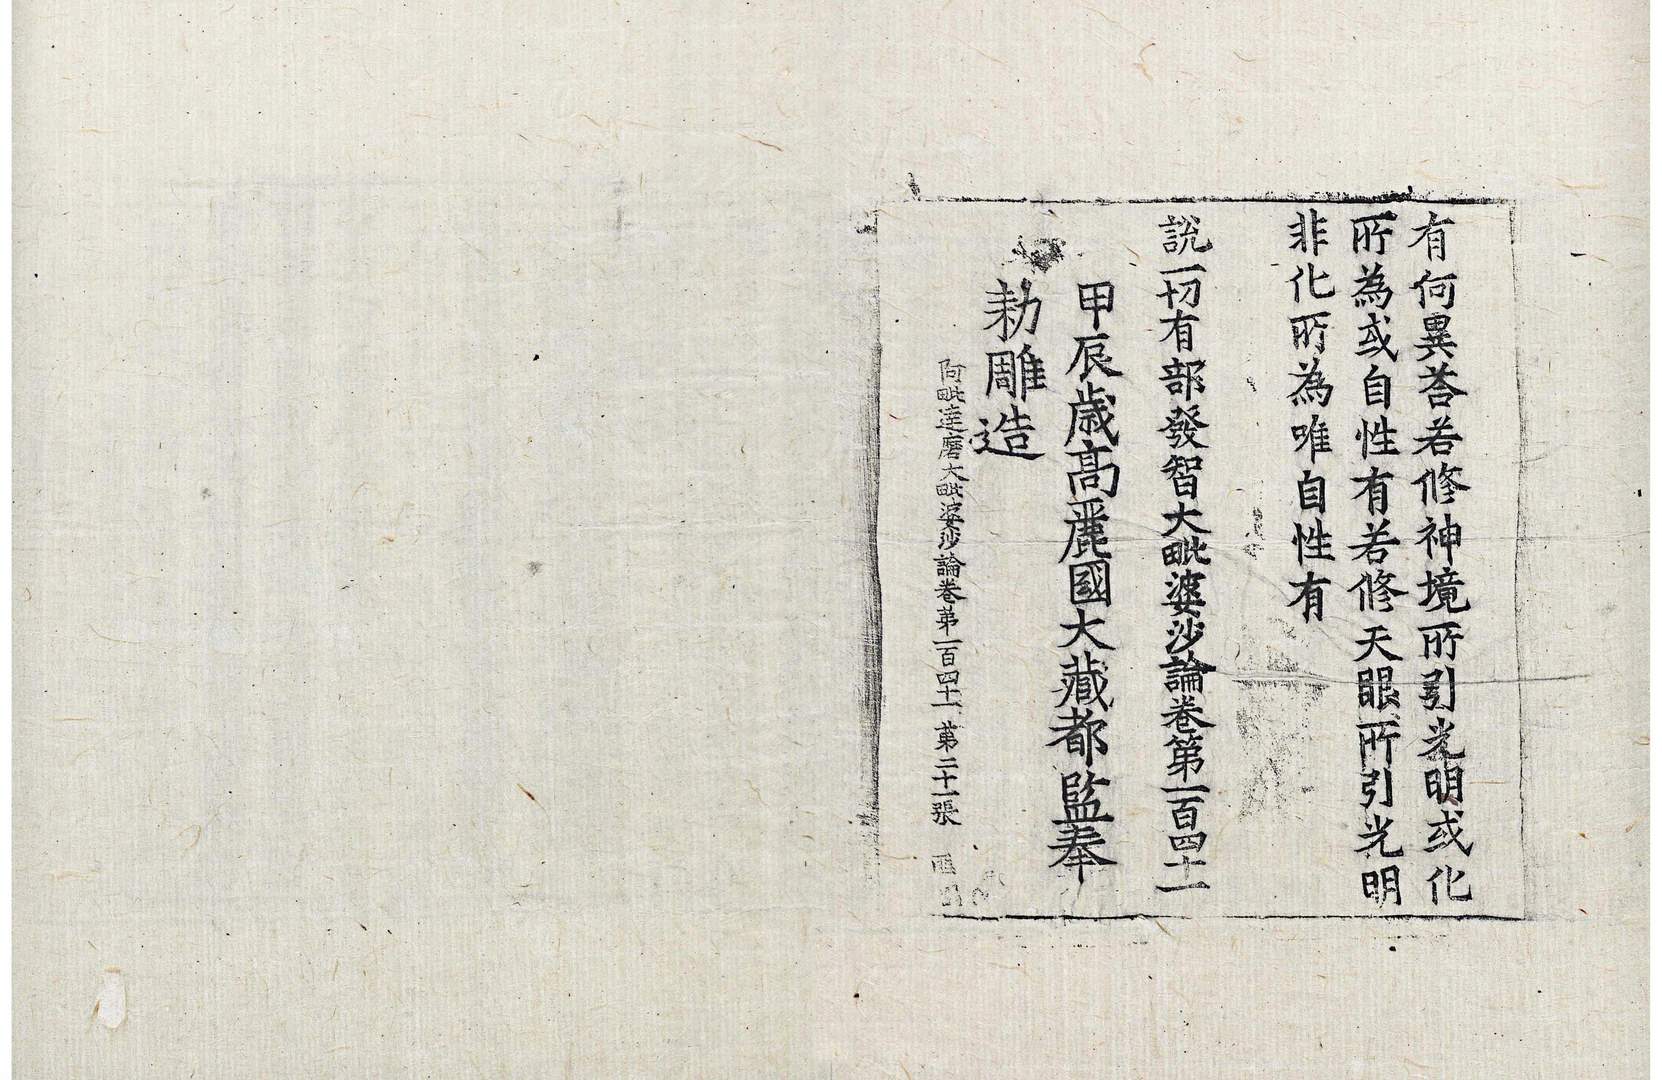 有何異荅若修神境所引光明或化
所為或自性有若修天眼所引光明
非化所為唯自性有
說一切有部發智大毗婆沙論卷第一百四十一
甲辰歳高麗國大藏都監奉
勑雕造
阿毗達磨大毗婆沙論卷第一百四十一 第二十一張